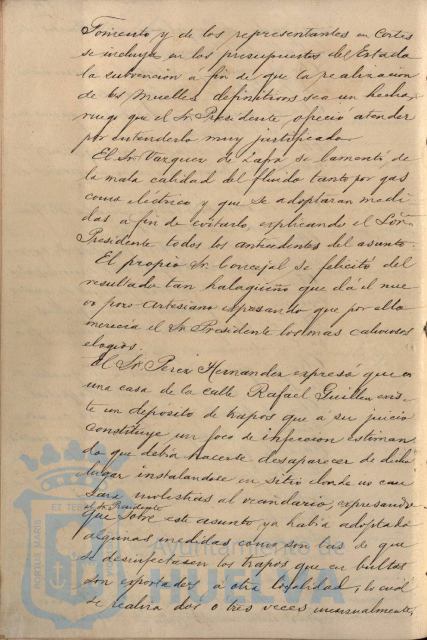 Fomento y de los representantes en Cortes
se incluya en los presupuestos del Estado
la subvencion a fin de que la realizacion
de los Muelles definitivos sea un hecho,
ruego que el Sr. Presidente ofreció atender
por entenderlo muy justificado.
El Sr. Vazquez de Zafra se lamentó de
la mala calidad del fluido tanto por gas
como eléctrico y que se adoptaran medi
das a fin de evitarlo, explicando el Sor.
Presidente todos los antecedentes del asunto.
El propio Sr. Concejal se felicitó del
resultado tan halagüeño que dá el nue
vo pozo artesiano expresando que por ello
merecia el Sr. Presidente los mas calurosos
elogios.
El Sr. Perez Hernandez expresó que en
una casa de la calle Rafael Guillen exis
te un deposito de trapos que a su juicio
constituye un foco de infeccion estiman
do que debia hacerse desaparecer de dicho
lugar instalandose en sitio donde no cau
sara molestias al vecindario, expresando
el Sr. Presidente
que sobre este asunto ya habia adoptado
algunas medidas como son las de que
se desinfectasen los trapos que en bultos
son exportados a otra localidad, lo cual
se realiza dos o tres veces mensualmente,
PORTUS MARIS
ET TER
Ayuntamiento de
HUELVA